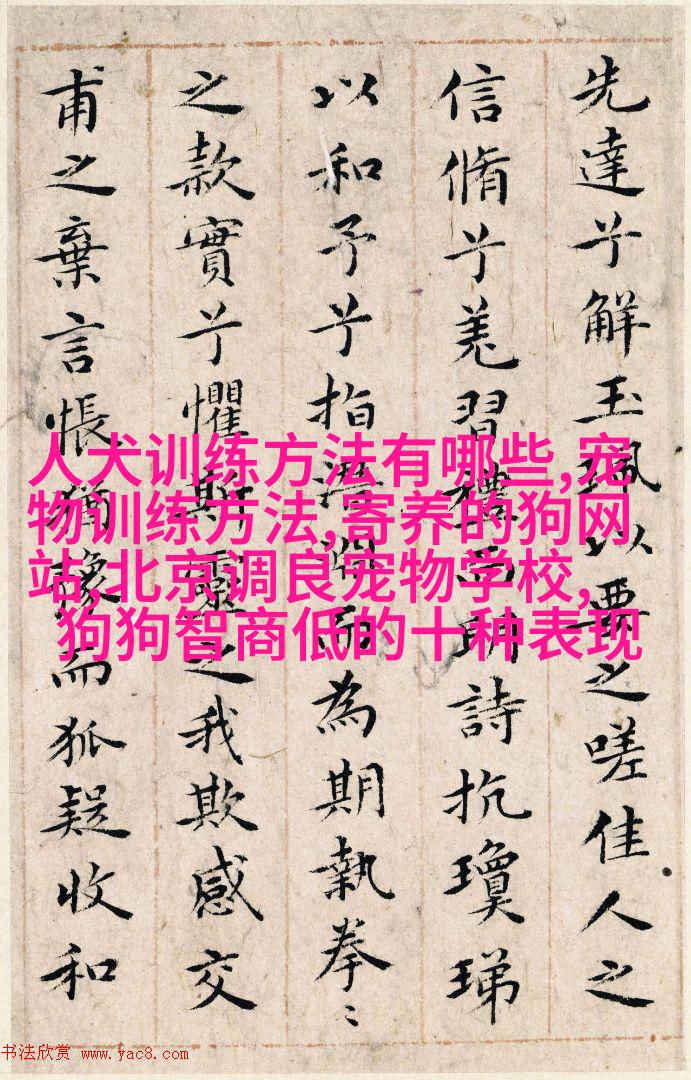 先達兮解玉珮以要之嗟佳人之
信脩兮羌習禮而明詩抗瓊珶
以和予兮指潛淵而為期執拳〻
之款實兮懼斯靈之我欺感交
甫之棄言悵猶豫而狐疑收和
人犬训练方法有哪些,宠
物训练方法,寄养的狗网
站,北京调良宠物学校,
狗狗智商低的十种表现
书法欣赏 www.yac8.com